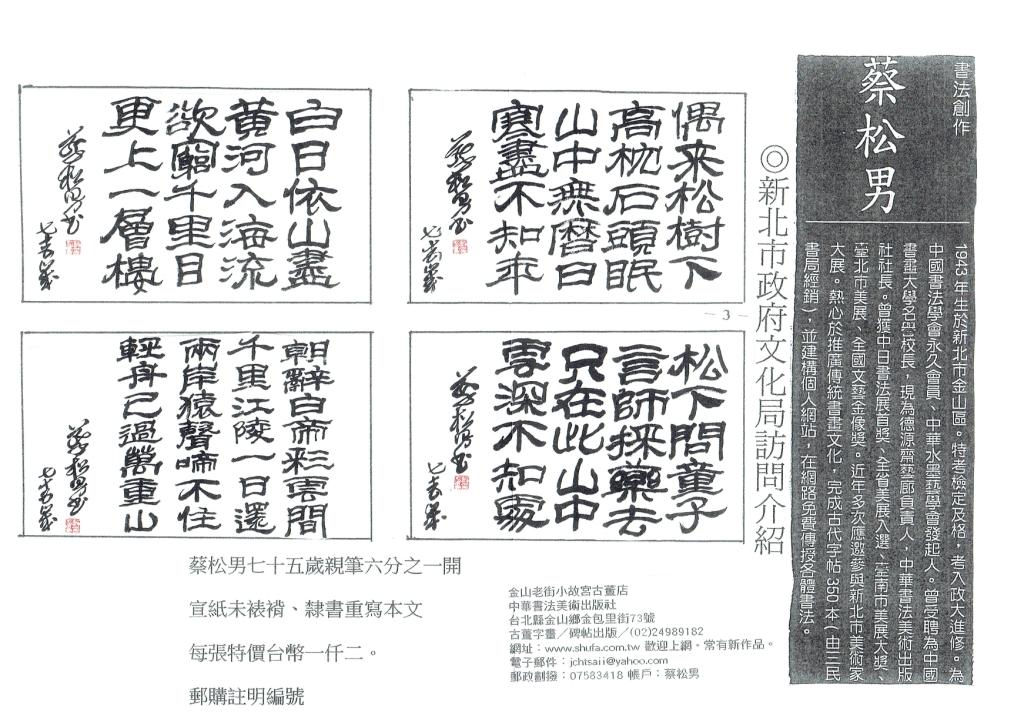 書法創作
蔡松男
1943 年生於新北市金山區。特考檢定及格，考入政大進修。為
中國書法學會永久會員、中華水墨藝學會發起人。曾受聘為中國
書畫大學名譽校長，現為德源齋藝廊負責人，中華書法美術出版
社社長。曾獲中日書法展首獎、全省美展入選、臺南市美展大獎、
臺北市美展、全國文藝金像獎。近年多次應邀參與新北市美術家
大展。熱心於推廣傳統書畫文化，完成古代字帖 350 本（由三民
書局經銷），並建構個人網站，在網路免費傳授各體書法。
◎新北市政府文化局訪問介紹
偶來松樹下
高枕石頭眠
山中無曆日
寒盡不知年
蔡松男書
七十五歲
白日依山盡
黃河入海流
欲窮千里目
更上一層樓
蔡松男書
七十五歲
－ 3 －
松下問童子
言師採藥去
只在此山中
雲深不知處
蔡松男書
七十五歲
朝辭白帝彩雲間
千里江陵一日還
兩岸猿聲啼不住
輕舟已過萬重山
蔡松男書
七十五歲
蔡松男七十五歲親筆六分之一開
宣紙未裱褙、隸書重寫本文
每張特價台幣一仟二。
郵購註明編號
金山老街小故宮古董店
中華書法美術出版社
台北縣金山鄉金包里街73號
古董字畫／碑帖出版／(02)24989182
網址：www.shufa.com.tw 歡迎上網。常有新作品。
電子郵件：jchtsaii@yahoo.com
郵政劃撥：07583418 帳戶：蔡松男